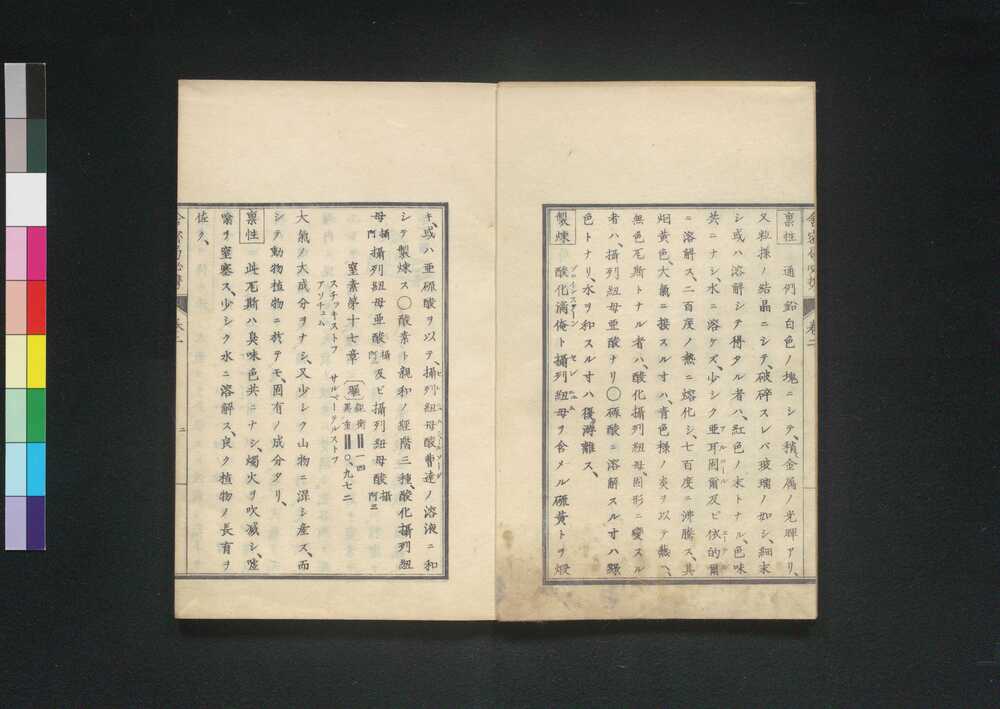 稟性 通例鉛白色ノ塊ニシテ、稍金属ノ光輝アリ、
又粒様ノ結晶ニシテ、破砕スレバ玻璃ノ如シ、細末
シ或ハ溶解シテ得タル者ハ、紅色ノ末トナル、色味
共ニナシ、水ニ溶ケズ、少シク亜耳固爾及ビ依的爾
ニ溶解ス、二百度ノ熱ニ熔化シ、七百度ニ沸騰ス、其
烟黄色、大氣ニ接スルオハ、青色様ノ炎ヲ以テ燃ヘ、
無色瓦斯トナル者ハ、酸化攝列紐母、固形ニ變スル
者ハ、攝列紐母亜酸ナリ〇硫酸ニ溶解スルオハ緑
色トナリ、水ヲ和スルオハ復游離ス、
製煉 酸化滿俺ト攝列紐母ヲ含メル硫黄トヲ煅
キ、或ハ亜硫酸ヲ以テ、攝列紐母酸曹達ノ溶液ニ和
シテ製煉ス〇酸素ト親和ノ経階三種、酸化攝列紐
母攝阿攝列紐母亜酸攝阿二及ビ攝列紐母酸攝阿三
窒素第十七章
スチッキストフ サルペートルストフ
アソチュム
大氣ノ大成分ヲナシ、又少シク山物ニ混シ産ス、而
シテ動物植物ニ於テモ、固有ノ成分タリ、
稟性 此瓦斯ハ臭味色共ニナシ、燭火ヲ吹滅シ、噓
噏ヲ窒塞ス、少シク水ニ溶解ス、良ク植物ノ長育ヲ
佐ク、